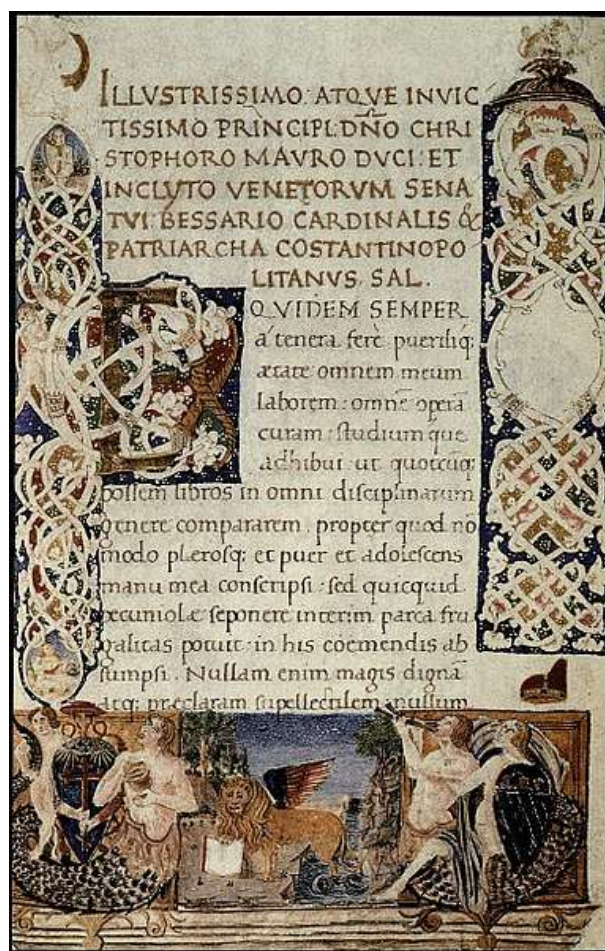 ILLVSTRISSIMO· ATQVE INVIC
TISSIMO PRINCIPI· DÑO CHRI
STOPHORO MAVRO DVCI: ET
INCLYTO VENETORVM SENA
TVI: BESSARIO CARDINALIS &
PATRIARCHA COSTANTINOPO
LITANVS· SAL.
E QVIDEM SEMPER
a tenera fere pueriliq;
ætate omnem meum
laborem: omnē operā
curam: studiumque
adhibui ut quotcūq;
possem libros in omni disciplinarum
genere compararem. propter quod nō
modo plerosq; et puer et adolescens
manu mea conscripsi: sed quicquid
pecuniolæ seponere interim parca fru
galitas potuit: in his coemendis ab
sumpsi. Nullam enim magis dignā
atq; præclaram supellectilem, nullum